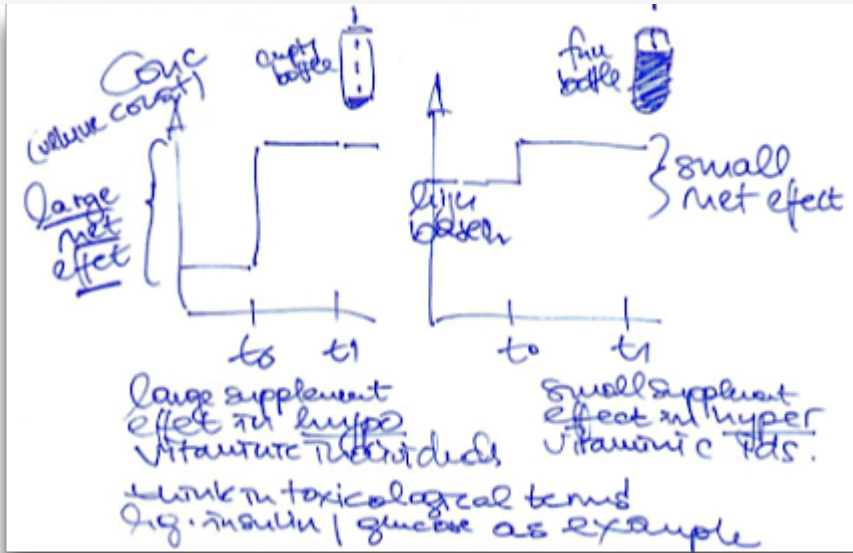 Conc
empty
bottle
full
bottle
large
net
effet
small
net effect
high
t0 t1
t0 t1
large supplement
effet in hypo
vitaminic individuals
small supplement
effect in hyper
vitaminic ids.
think in toxicological terms
e.g. insulin / glucose as example